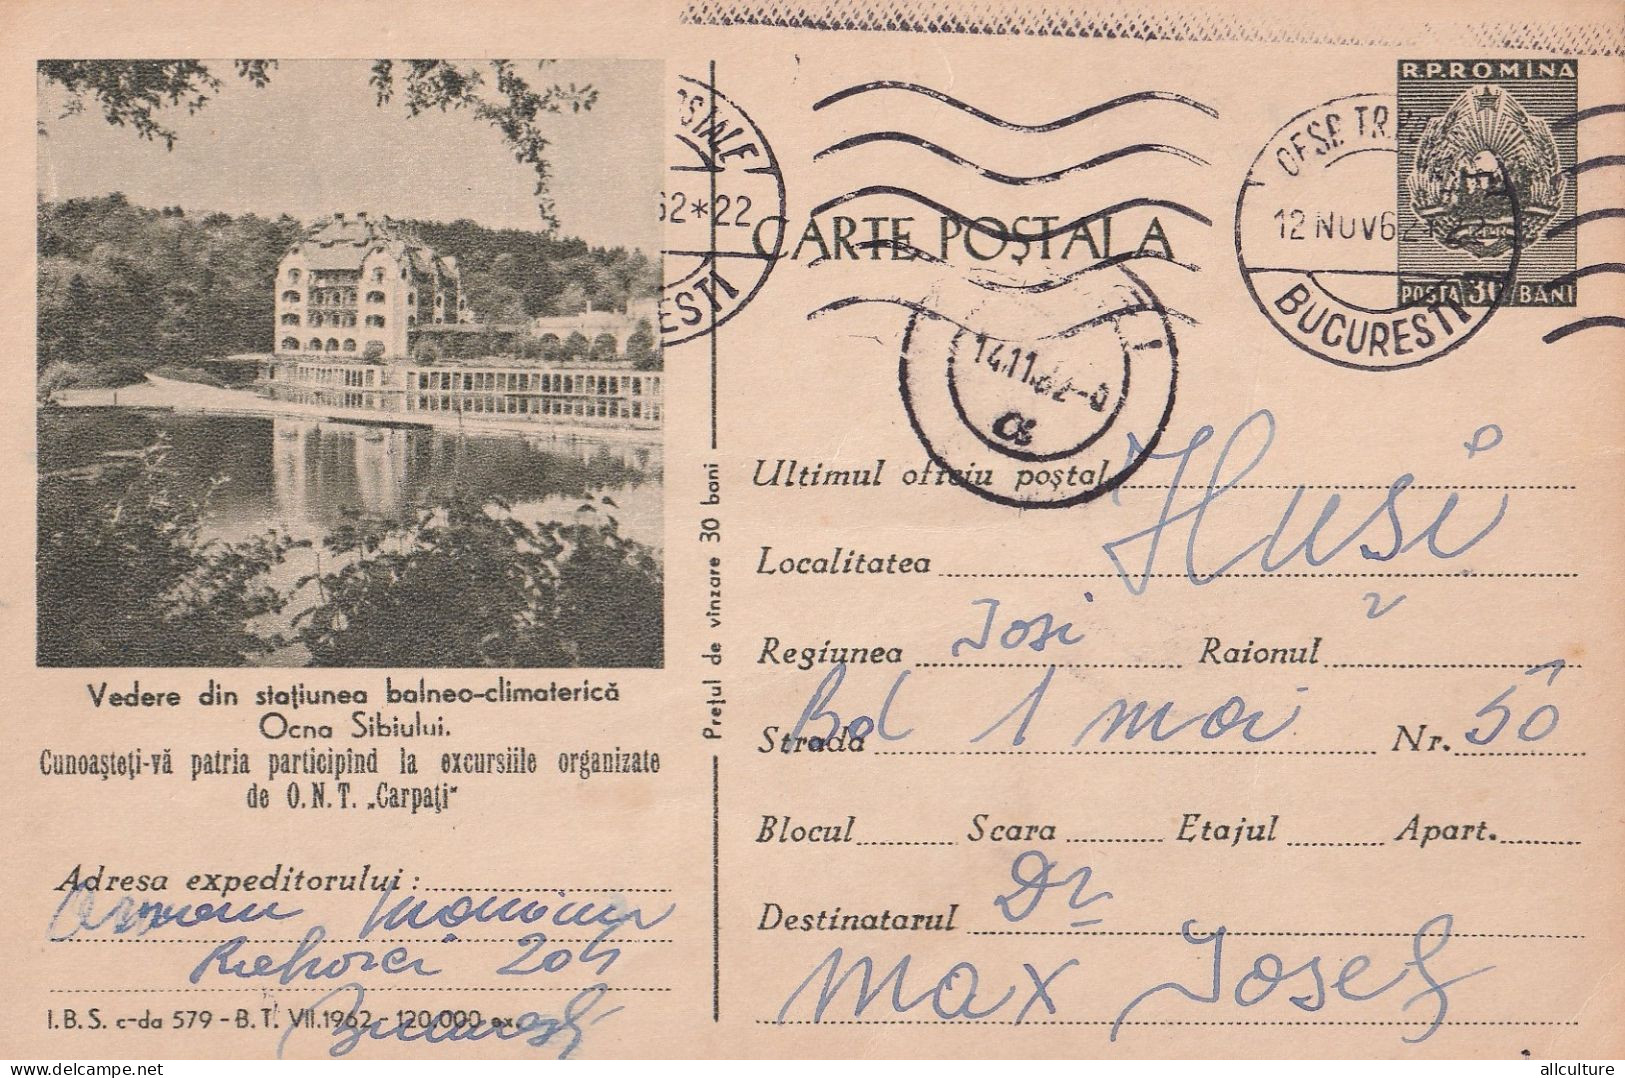 R.P.ROMÎNA
POSTA 30 BANI
OFSP. TR.
12 NOV 62
BUCURESTI
62*22
CARTE POȘTALA
14.11.62
Vedere din stațiunea balneo-climaterică
Ocna Sibiului.
Cunoașteți-vă patria participînd la excursiile organizate
de O.N.T. „Carpați"
Adresa expeditorului:
204
I.B.S. c-da 579 - B.T. VII.1962 - 120.000 ex.
Prețul de vînzare 30 bani
Ultimul oficiu poștal
Localitatea Huși
Regiunea Iași Raionul
Strada Bd 1 mai Nr. 50
Blocul Scara Etajul Apart.
Destinatarul Dr
Max Iosef
allculture